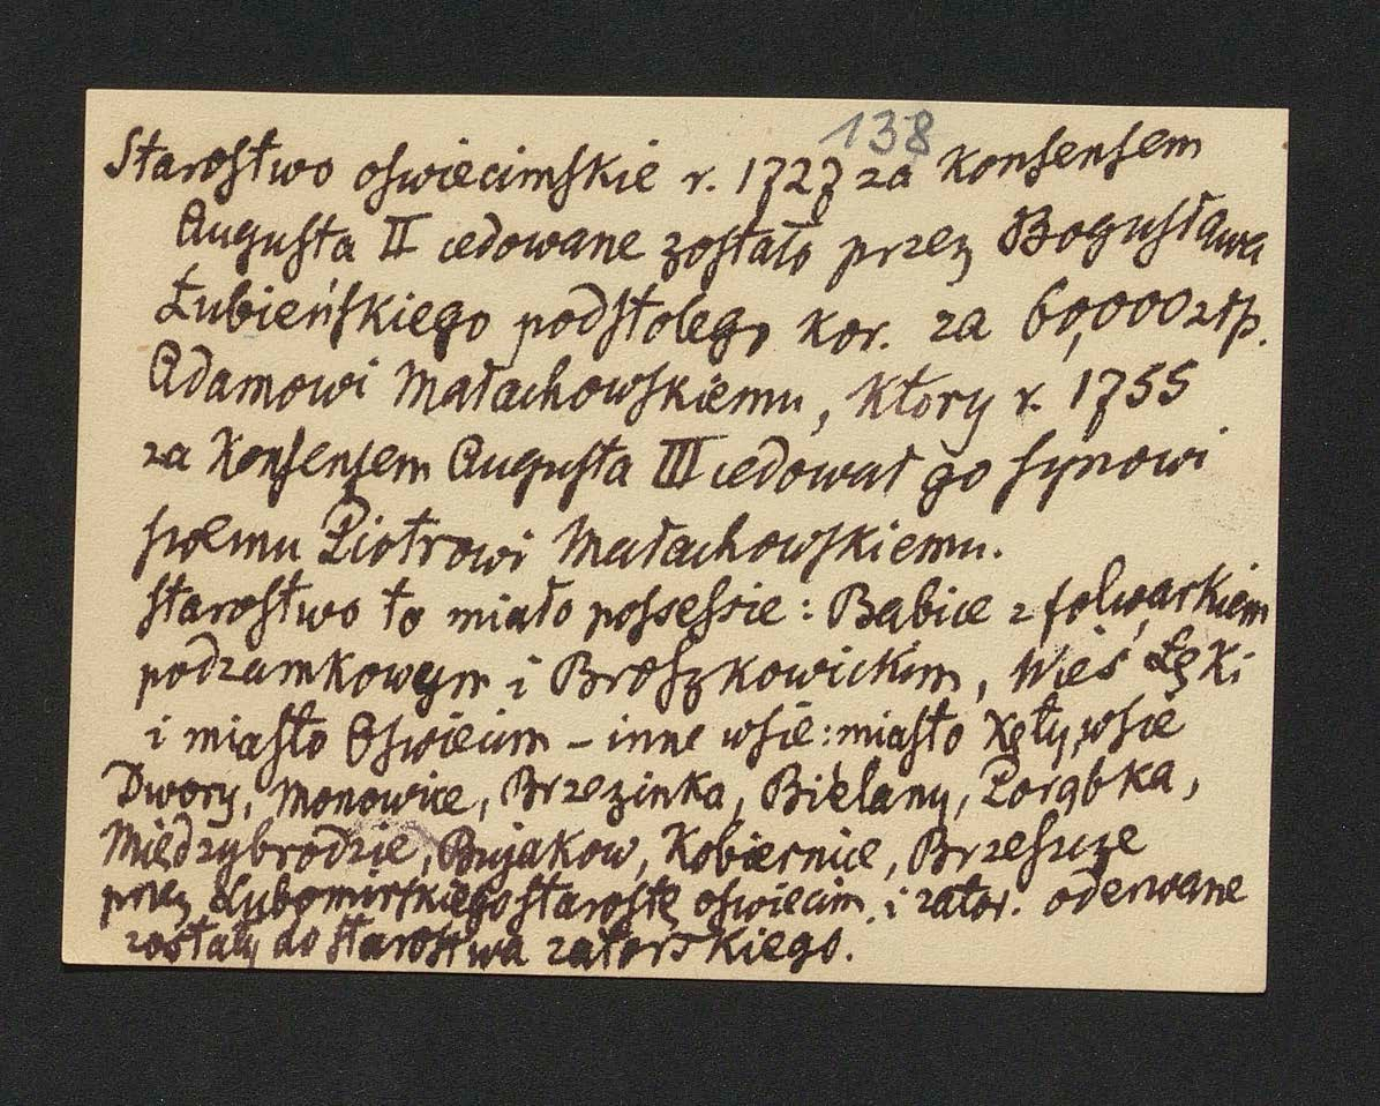 138
Starostwo oswiecimskie r. 1727 za konsensem
Augusta II cedowane zostało przez Bogusława
Łubieńskiego podstolego kor. za 60,000 złp.
Adamowi Małachowskiemu, ktory r. 1755
za konsensem Augusta III cedował go synowi
swemu Piotrowi Małachowskiemu.
Starostwo to miało possessie: Babice z folwarkiem
podzamkowym i Broszkowickim, Wieś Łęki
i miasto Oswiecim - inne wsie: miasto Kęty, wsie
Dwory, Monowice, Brzezinka, Bielany, Porąbka,
Międzybrodzie, Bujakow, Kobiernice, Brzeszcze
przez Lubomirskiego starostę oswiecim. i zator. oderwane
zostały do starostwa zatorskiego.